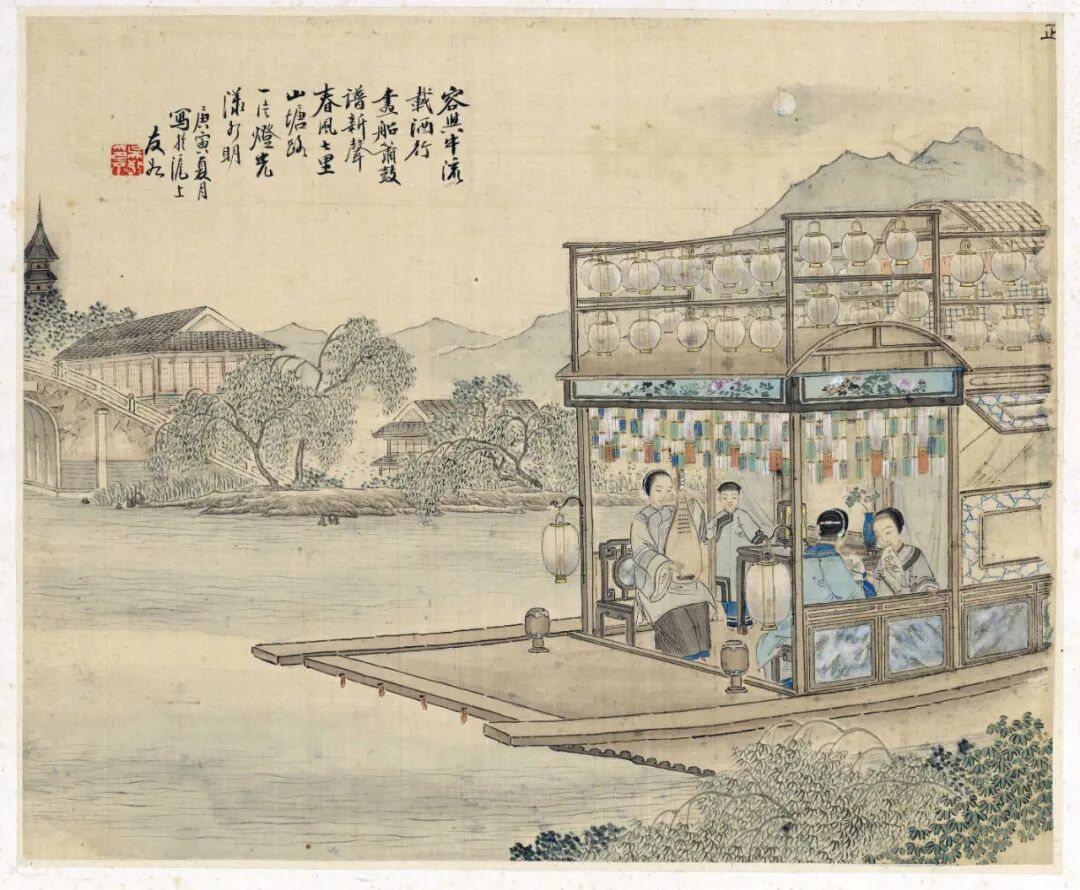 正
容與中流
載酒行
畫船簫鼓
譜新聲
春風七里
山塘路
一片燈光
漾水明
庚寅夏月
寫於滬上
友如